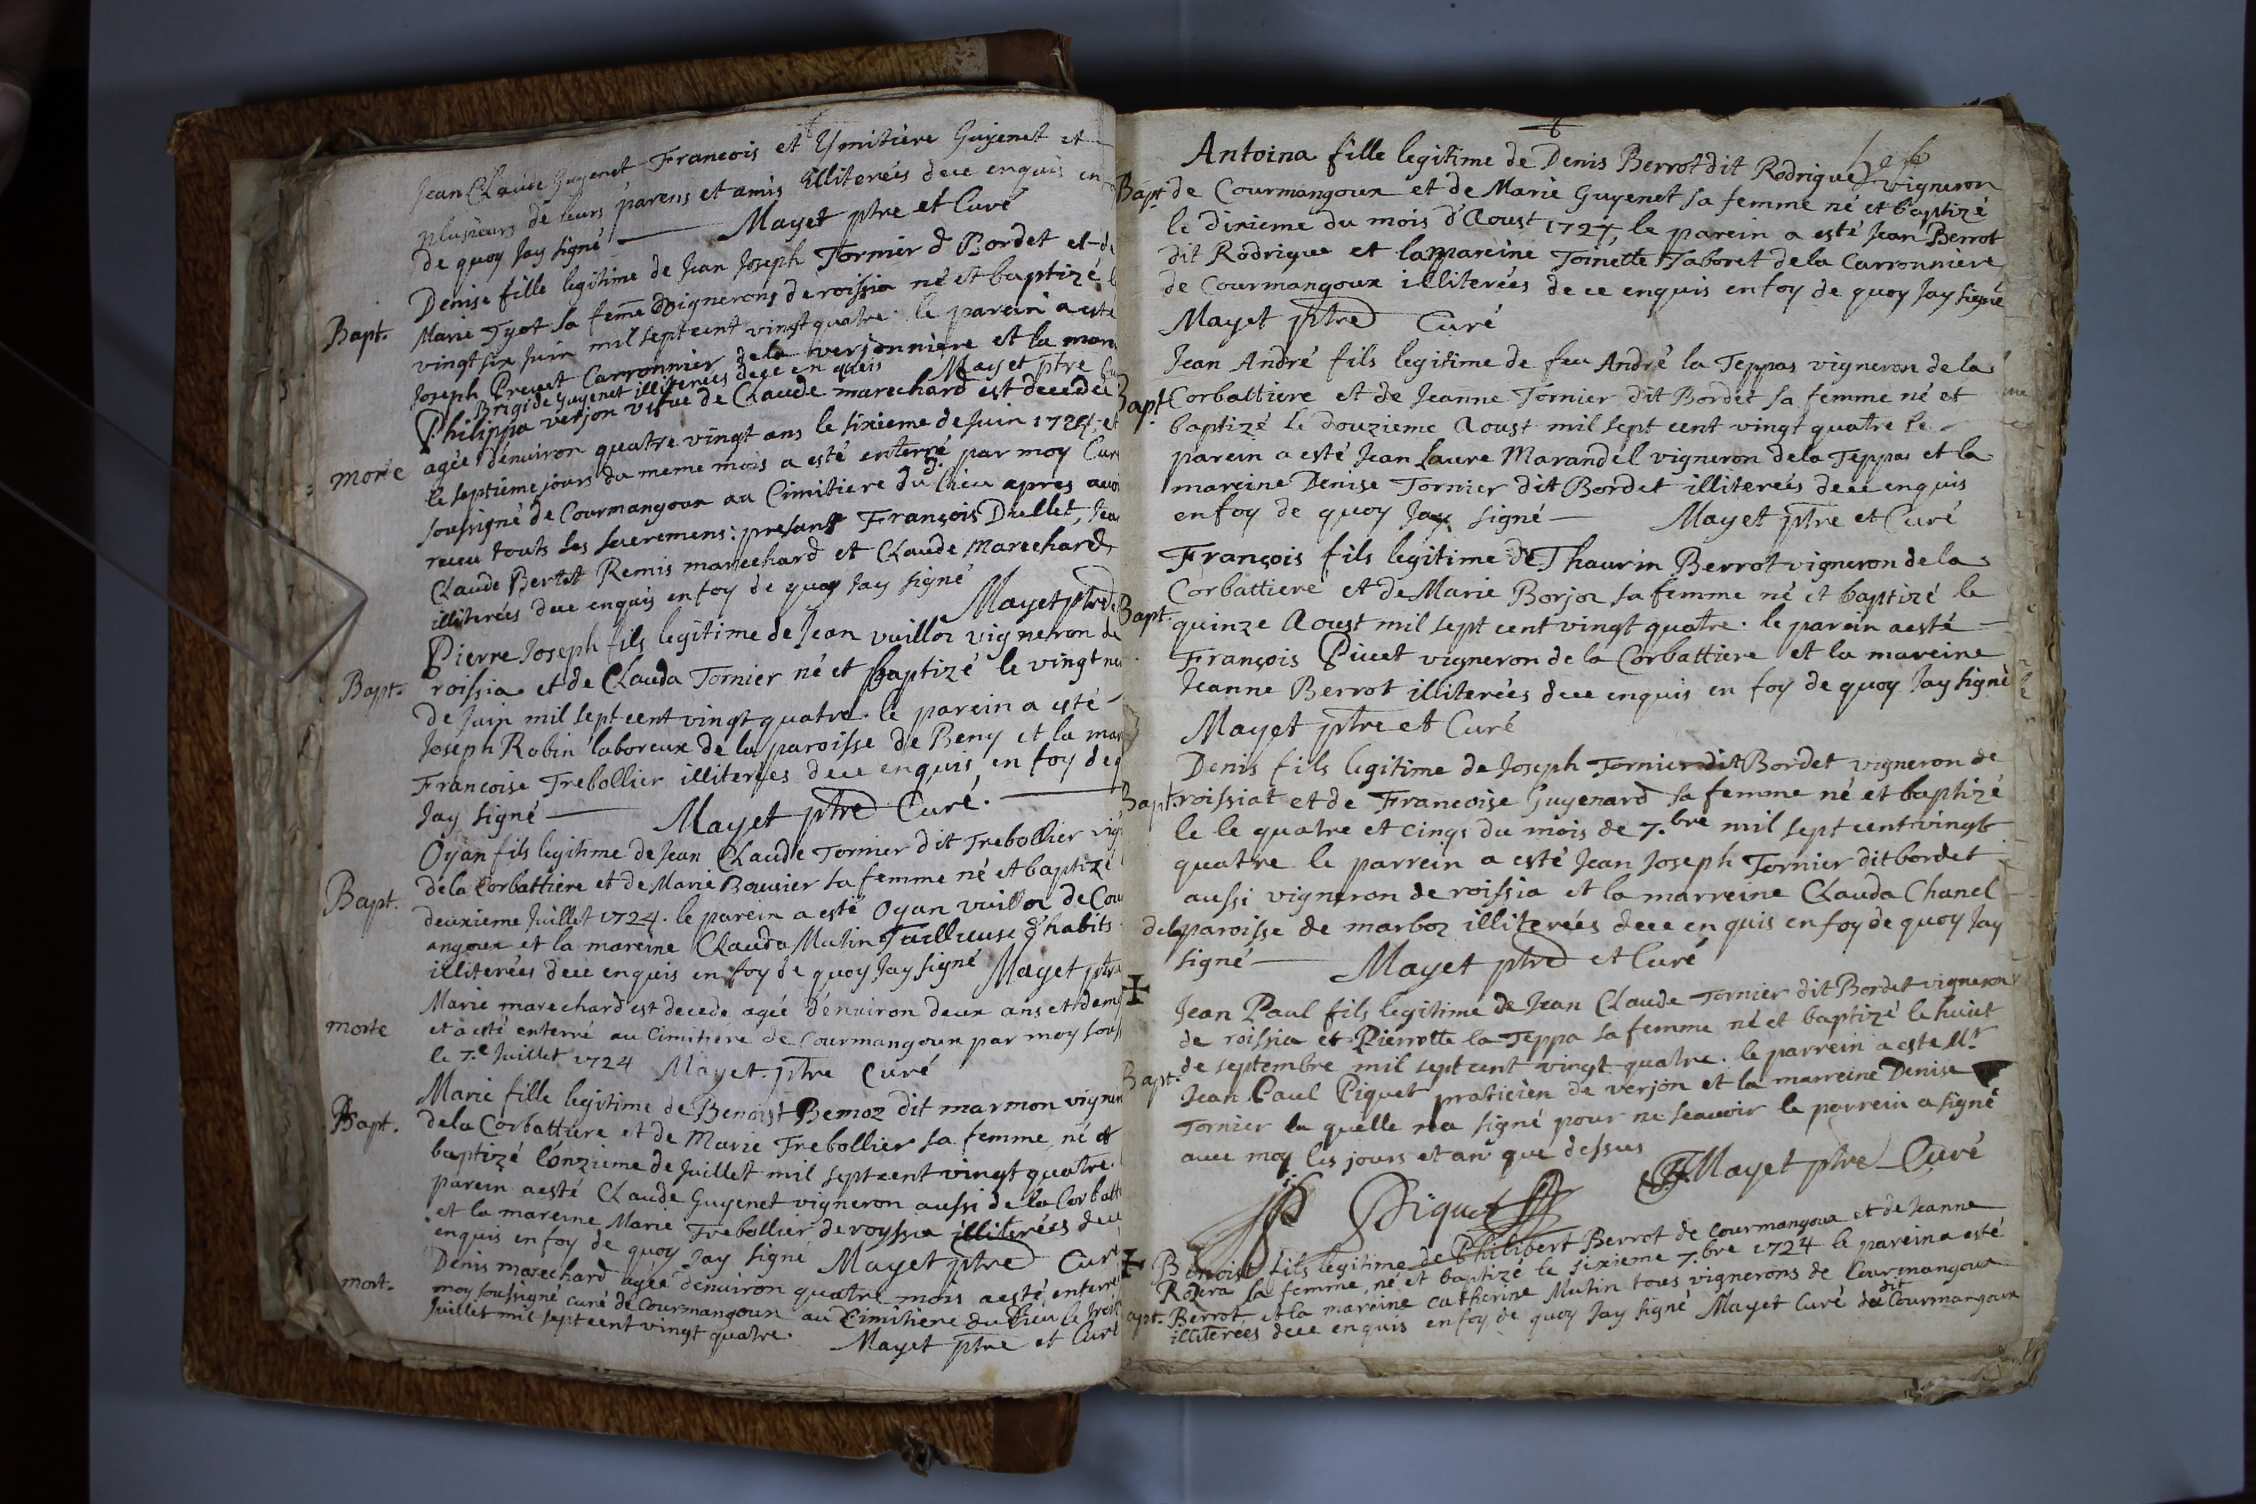 Jean Claude Guyenet Francois et Ymitiere Guyenet et
plusieurs de leurs parens et amis illiterées dece enquis en
de quoy Jay signé Mayet ptre et Curé
Denise fille legitime de Jean Joseph Tornier d Bordet et d
Bapt. Marie Tyot sa femē vignerons de roissia né et baptizé l
vingt six Juin mil sept cent vingt quatre. le parein a esté
Joseph Prevet Carronnier de la verjonniere et la mare
Brigide Guyenet illiterées dece enquis Mayet ptre Cu
Philippa verjon vefve de Claude marechard est decedée
morte agée denviron quatre vingt ans le sixieme de Juin 1724, et
le septieme jours du meme mois a esté enterré par moy Curé
soussigné de Courmangoux au Cimitiere du d. lieu apres avoi
receu touts les sacremens: presans François Drellet, Jea
Claude Bertet Remis marechard et Claude marechard,
illiterées dece enquis en foy de quoy Jay signé
Mayet ptre
Pierre Joseph fils legitime de Jean vuilloz vigneron de
Bapt. roissia et de Clauda Tornier né et baptizé le vingt ne
de Juin mil sept cent vingt quatre. le parein a esté
Joseph Robin laboreux de la paroisse de Beny et la mar
Francoise Trebollier illiterées dece enquis, en foy de q
Jay signé Mayet ptre Curé.
Oyan fils legitime de Jean Claude Tornier dit Trebollier vig
Bapt. de la Corbattiere et de Marie Bouvier sa femme né et baptizé
deuxieme Juillet 1724. le parein a esté Oyan vuilloz de Cou
angoux et la mareine Clauda Mutin Tailleuse d'habits
illiterées dece enquis en foy de quoy Jay signé Mayet ptre
Marie marechard est decede agée denviron deux ans et demi
morte et a esté enterré au Cimitiere de Courmangoux par moy souss
le 7.e Juillet 1724 Mayet ptre Curé
Marie fille legitime de Benoist Bemoz dit marmon vigner
Bapt. de la Corbattiere et de Marie Trebollier sa femme né et
baptizé l'onzieme de Juillet mil sept cent vingt quatre.
parein a esté Claude Guyenet vigneron aussi de la Corbatti
et la mareine Marie Trebollier de royssia illiterées dece
enquis en foy de quoy Jay signé Mayet ptre Curé
Denis marechard agée denviron quatre mois a esté enterré
mort. moy soussigné curé de Courmangoux au Cimitiere du lieu le troisi
Juillet mil sept cent vingt quatre. Mayet ptre et Curé
Antoina fille legitime de Denis Berrot dit Rodrigue vigneron
Bapt. de Courmangoux et de Marie Guyenet sa femme né et baptizé
le dixieme du mois d'Aoust 1724, le parein a esté Jean Berrot
dit Rodrigue et la mareine Toinette Taboret de la Carronniere
de Courmangoux illiterées dece enquis en foy de quoy Jay signé
Mayet ptre Curé
Jean André fils legitime de feu André la Teppas vigneron de la
Bapt. Corbattiere et de Jeanne Tornier dit Bordet sa femme né et
baptizé le douzieme Aoust mil sept cent vingt quatre le
parein a esté Jean Laure Marandel vigneron de la Teppas et la
mareine Denise Tornier dit Bordet illiterées dece enquis
en foy de quoy Jay signé Mayet ptre et Curé
François fils legitime de Thaurin Berrot vigneron de la
Corbattiere et de Marie Borjoz sa femme né et baptizé le
Bapt. quinze Aoust mil sept cent vingt quatre. le parein a esté
François Pivet vigneron de la Corbattiere et la mareine
Jeanne Berrot illiterées dece enquis en foy de quoy Jay signé
Mayet ptre et Curé
Denis fils legitime de Joseph Tornier dit Bordet vigneron de
Bapt. roissiat et de Francoise Guyenard sa femme né et baptizé
le le quatre et cinqs du mois de 7.bre mil sept cent vingt
quatre le parrein a esté Jean Joseph Tornier dit bordet
aussi vigneron de roissia et la marreine Clauda Chanel
dela paroisse de marboz illiterées dece enquis en foy de quoy Jay
signé Mayet ptre et Curé
Jean Paul fils legitime de Jean Claude Tornier dit Bordet vigneron
de roissia et Pierrotte la Teppa sa femme né et baptizé le huict
Bapt. de septembre mil sept cent vingt quatre. le parrein a este Mr
Jean Paul Piquet praticien de verjon et la marreine Denise
Tornier la quelle na signé pour ne scauoir le parrein a signé
avec moy les jours et an que dessus
Piquet Mayet ptre Curé
Benoist fils legitime de Philibert Berrot de Courmangoux et de Jeanne
Rozera sa femme né et baptizé le sixieme 7.bre 1724 le parein a esté
apt. Berrot et la mareine Catherine Mutin tous vignerons de Courmangoux
illiterées dece enquis en foy de quoy Jay signé Mayet Curé du dit Courmangoux